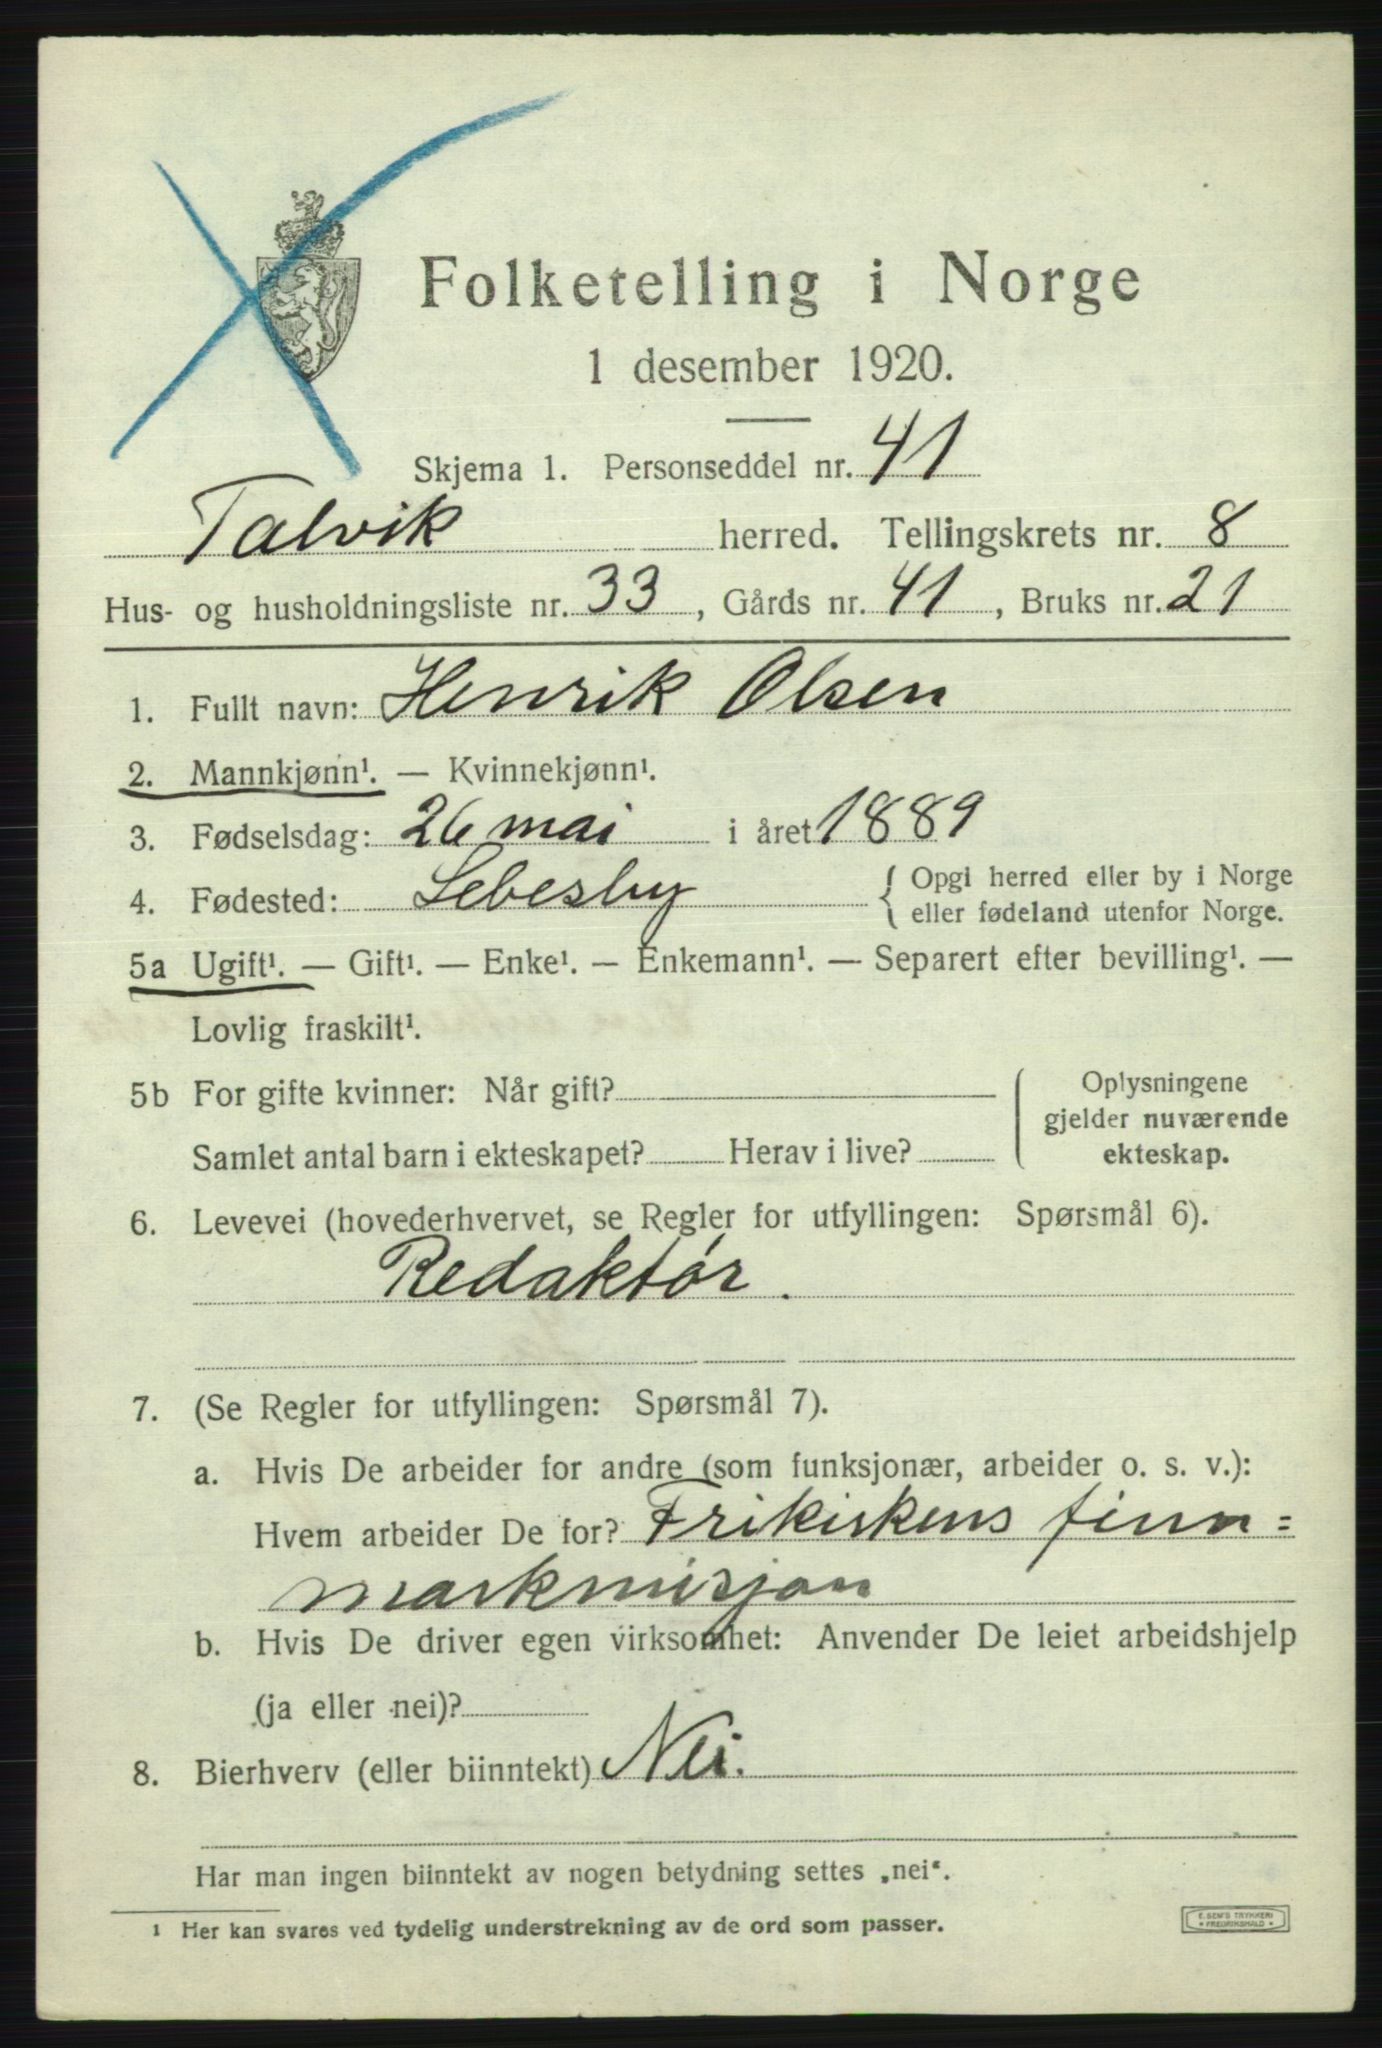 Folketelling i Norge
1 desember 1920.
Skjema 1. Personseddel nr. 41
Talvik herred. Tellingskrets nr. 8
Hus- og husholdningsliste nr. 33, Gårds nr. 41, Bruks nr. 21
1. Fullt navn: Henrik Olsen
2. Mannkjønn¹. — Kvinnekjønn¹.
3. Fødselsdag: 26 mai i året 1889
4. Fødested: Lebesby { Opgi herred eller by i Norge
eller fødeland utenfor Norge.
5a Ugift¹. — Gift¹. — Enke¹. — Enkemann¹. — Separert efter bevilling¹. —
Lovlig fraskilt¹.
5b For gifte kvinner: Når gift?
Samlet antal barn i ekteskapet? Herav i live?
Oplysningene
gjelder nuværende
ekteskap.
6. Levevei (hovederhvervet, se Regler for utfyllingen: Spørsmål 6).
Redaktør.
7. (Se Regler for utfyllingen: Spørsmål 7).
a. Hvis De arbeider for andre (som funksjonær, arbeider o. s. v.):
Hvem arbeider De for? Frikirkens finn=
markmisjon
b. Hvis De driver egen virksomhet: Anvender De leiet arbeidshjelp
(ja eller nei)?
8. Bierhverv (eller biinntekt) Nei.
Har man ingen biinntekt av nogen betydning settes „nei“.
¹ Her kan svares ved tydelig understrekning av de ord som passer.
E. SEM'S TRYKKERI
FREDRIKSHALD